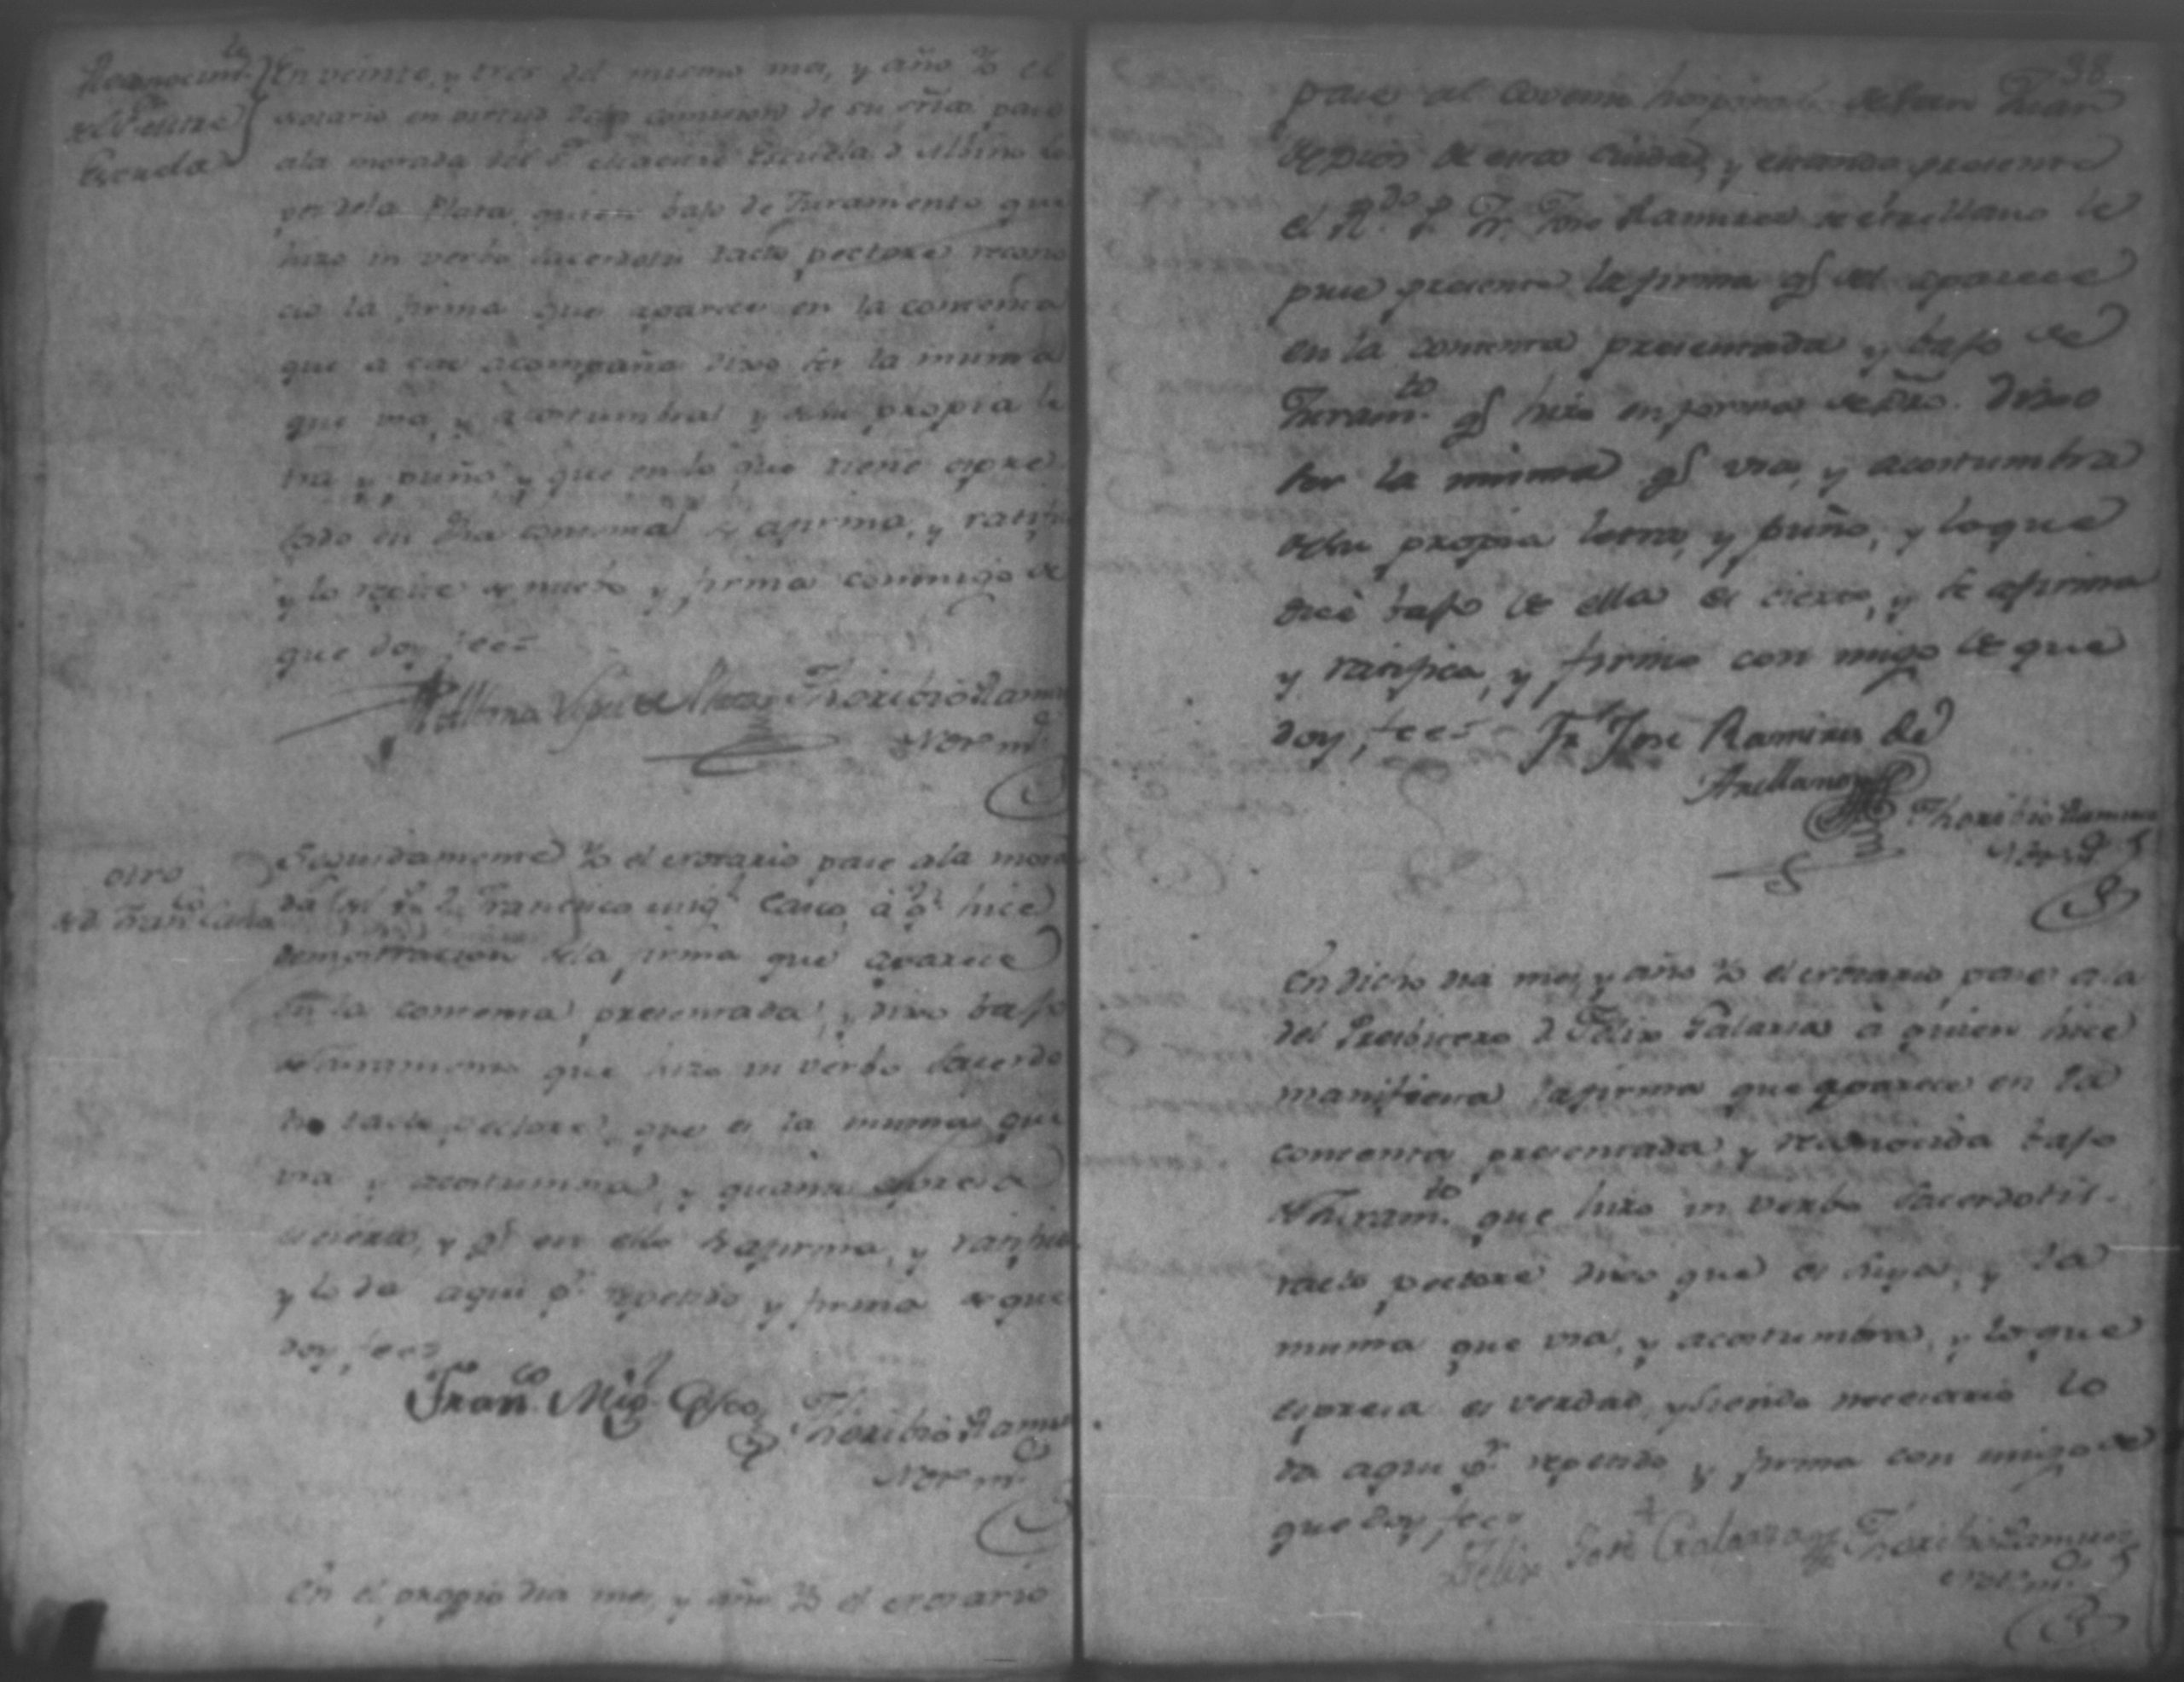 Reconocim.to
del P. Mtre
Escuela
En veinte, y tres del mismo mes, y año Yo el
notario en virtud de la comision de su Sria. pase
ala morada del Sr. Maestre Escuela D. Albino Lo
pes dela Plata quien bajo de Juramento que
hizo in verbo sacerdotis tacto pectore recono
cio la firma que aparece en la contenta
que a este acompaña dixo ser la misma
que usa, y acostumbra y de su propia le
tra y puño, y que en lo que tiene expre
sado en dha contenta se afirma, y ratifi
y lo repite de nuebo y firma conmigo de
que doy fee=
Albino Lopes de la Plata Thoribio Ramire
Not.o m.r
otro
de D. Fran.co Casco
Seguidamente Yo el notario pase ala mora
da del Sr. D. Francisco Mig.l Casco, à q.n hice
demostracion dela firma que aparece
en la contenta presentada, y dixo bajo
de Juramento que hizo in verbo Sacerdo
tis tacto pectore, que es la misma que
usa y acostumbra, y quanto expresa
es cierto, y q.e en ello se afirma, y ratifica
y lo da aqui p.r repetido y firma de que
doy fee=
Fran.co Mig.l Casco Thoribio Ramire
Not.o m.r
En el propio dia mes, y año Yo el notario
38
pase al convento hospital de San Juan
de Dios de esta Ciudad, y estando presente
el R.do P. Fr. Jose Ramires de Arellano le
puse presente la firma q.e del aparece
en la contenta presentada y bajo de
Juram.to q.e hizo en forma de dro. dixo
ser la misma q.e usa, y acostumbra
de su propia letra, y puño, y lo que
dice bajo de ella es cierto, y se afirma
y ratifica, y firmo con migo de que
doy fee= Fr. Jose Ramires de
Arellano
Thoribio Ramires
Not.o m.r
En dicho dia mes, y año Yo el notario pase a la
del Presbitero D. Felix Galarza à quien hice
manifiesta la firma que aparece en la
contenta presentada y reconocida bajo
de Juram.to que hizo in verbo Sacerdotis
tacto pectore dixo que es suya, y la
misma que usa, y acostumbra, y lo que
expresa es verdad, y siendo necesario lo
da aqui p.r repetido y firma con migo de
que doy fee=
Felix Jose Galarza Thoribio Ramires
Not.o m.r